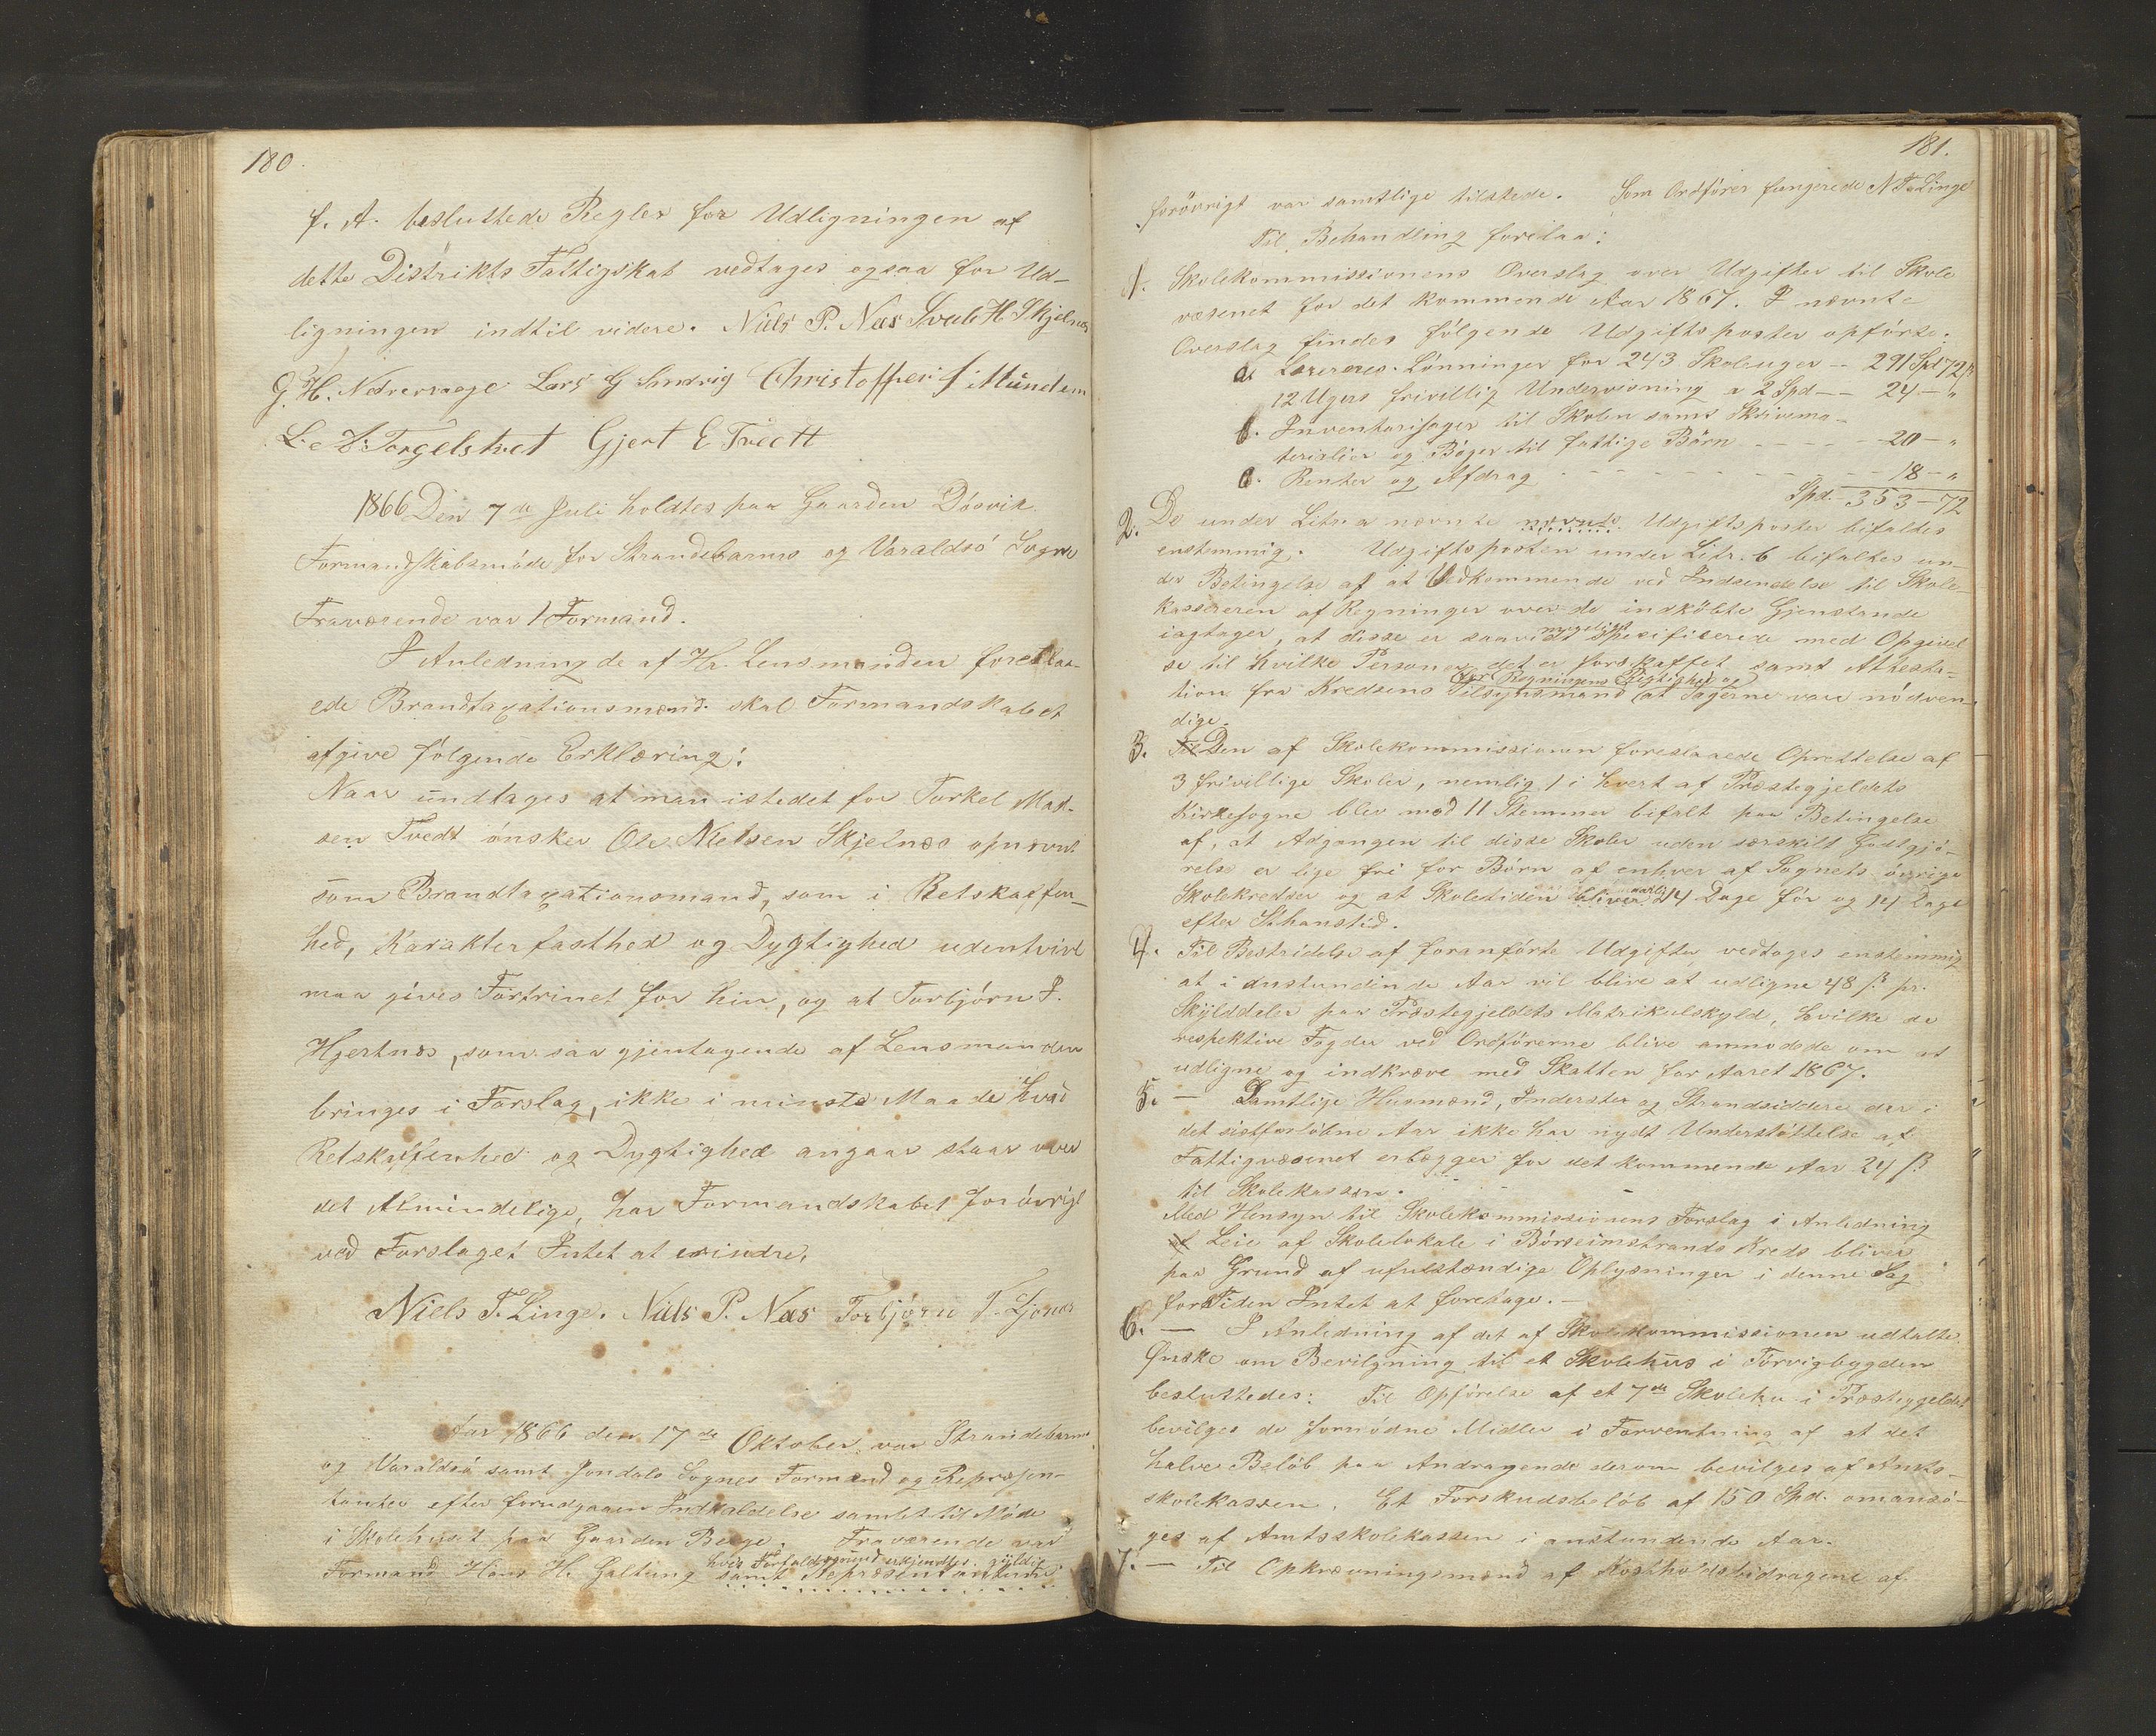 180.
f. A. besluttede Regler for Udligningen af
dette Distrikts Fattigskat vedtages ogsaa for Ud-
ligningen indtil videre. Niels P. Næs H Skjelnæs
G. H. Lars G Sandvig Christoffer Mundem
L. Torgelstvet Gjert E Tvedt
1866 Den 7de Juli holdtes paa Gaarden Dösvik
Formandskabsmöde for Strandebarms og Varaldsö Sogne
Fraværende var 1 Formand.
I Anledning de af Hr. Lensmanden foreslaa-
ede Brandtaxationsmænd skal Formandskabet
afgive fölgende Erklæring:
Naar undtages at man istedet for Torkel Mat-
sen Tvedt önsker Ole Nielsen Skjelnæs opnævnt
som Brandtaxationsmand, som i Retskaffen-
hed, Karakterfasthed og Dygtighed udentvivl
maa gives Fortrinet for hin, og at Torbjörn J.
Hjertnæs, som saa gjentagende af Lensmanden
bringes i Forslag, ikke i minste Maade hvad
Retskaffenhed og Dygtighed angaar staar over
det Almindelige, har Formandskabet forövrigt
ved Forslaget Intet at erindre.
Niels T. Linge. Niels P. Næs Torbjörn T. Ljones
Aar 1866 den 17de Oktober var Strandebarms
og Varaldsö samt Jondals Sognes Formænd og Repræsen-
tanter efter forudgaaen Indkaldelse samlet til Möde
i Skolehuset paa Gaarden Berge. Fraværende var
hvis Forfaldsgrund erkjendtes gyldig
Formand Hans H. Galtung samt Repræsentanterne
181.
forövrigt var samtlige tilstede. Som Ordförer fungerede N T Linge
Til Behandling forelaa:
1. Skolekommissionens Overslag over Udgifter til Skole
væsenet for det kommende Aar 1867. I nævnte
Overslag findes fölgende Udgiftsposter opförte:
a. Læreres Lönninger for 243 Skoleuger -- 291 Spd 72 ß
12 Ugers frivillig Undervisning a 2 Spd -- 24 - "
b. Inventarisager til Skolen samt Skrivema-
terialier og Böger til fattige Börn - - - - 20 - "
c. Renter og Afdrag - - - - - - - 18 - "
Spd. 353 - 72
2. De under Litr. a nævnte nævnte Udgiftsposter bifaldes
enstemmig. Udgiftsposten under Litr. b bifaltes un-
der Betingelse af at Vedkommende ved Indsendelse til Skole-
kassereren af Regninger over de indköbte Gjenstande
iagtager, at disse er saavidt muligt spesifiserede med Opgivel
se til hvilke Personer det er forskaffet samt Attesta-
for Regningens Rigtighed og
tion fra Kredsens Tilsynsmand at Sagerne var nödven
dige.
3. Til Den af Skolekommissionen foreslaaede Oprettelse af
3 frivillige Skoler, nemlig 1 i hvert af Præstegjeldets
Kirkesogne blev med 11 Stemmer bifalt paa Betingelse
af, at Adgangen til disse Skoler uden særskilt Godtgjö-
relse er lige fri for Börn af enhver af Sognets övrige
Skolekredser og at Skoletiden bliver 14 Dage för og 14 Dage
efter Sthanstid.
4. Til Bestridelse af foranförte Udgifter vedtages enstemmig
at i anstundende Aar vil blive at udligne 48 ß pr.
Skylddaler paa Præstegjeldets Matrikulskyld, hvilke de
respektive Fogder ved Ordförerne blive anmodede om at
udligne og indkræve med Skatten for Aaret 1867.
5. - Samtlige Husmænd, Inderster og Strandsiddere der i
det sistforlöbne Aar ikke har nydt Understöttelse af
Fattigvæsenet erlægger for det kommende Aar 24 ß
til Skolekassen.
Med Hensyn til Skolekommissionens Forslag i Anledning
af Leie af Skolelokale i Börseimstrands Kreds bliver
paa Grund af ufulstændige Oplysninger i denne Sag
for Tiden Intet at foretage. -
6. - I Anledning af det af Skolekommissionen udtalte
Önske om Bevilgning til et Skolehus i Törvigbygden
besluttedes: Til Opförelse af et 7de Skolehu i Præstegjeldet
bevilges de fornödne Midler i Forventning af at det
halve Belöb paa Andragende derom bevilges af Amts-
skolekassen. Et Forskudsbelöb af 150 Spd. omansö-
ges af Amtsskolekassen i anstundende Aar.
7. - Til Opkrævningsmænd af Kostholdsbidragene af